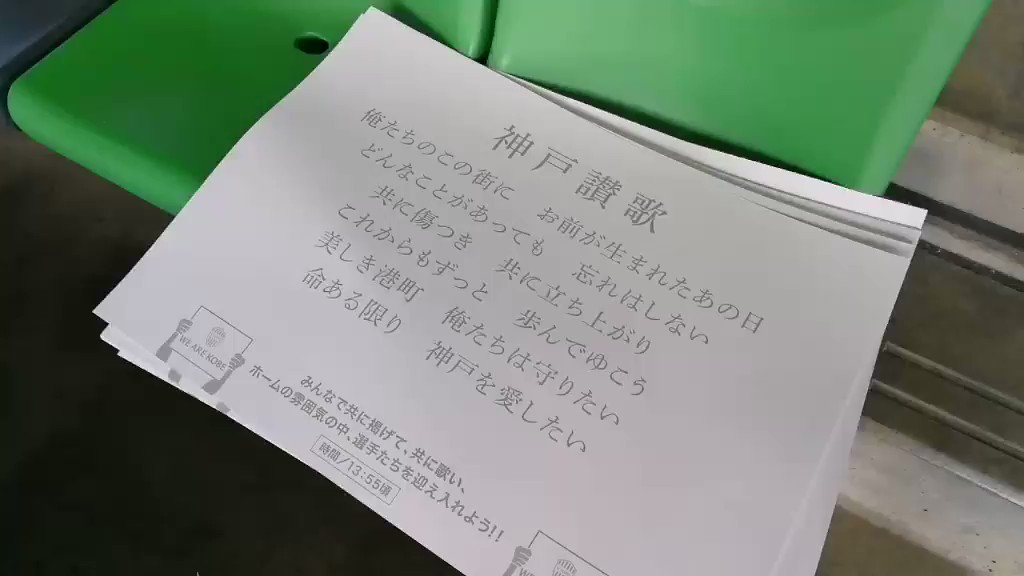 神戸讃歌
俺たちのこの街に　お前が生まれたあの日
どんなことがあっても　忘れはしない
共に傷つき　共に立ち上がり
これからもずっと　歩んでゆこう
美しき港町　俺たちは守りたい
命ある限り　神戸を愛したい
WE ARE KOBE
みんなで共に掲げて、共に歌い、
ホームの雰囲気の中、選手たちを迎え入れよう!!
時間/13:55頃
WE